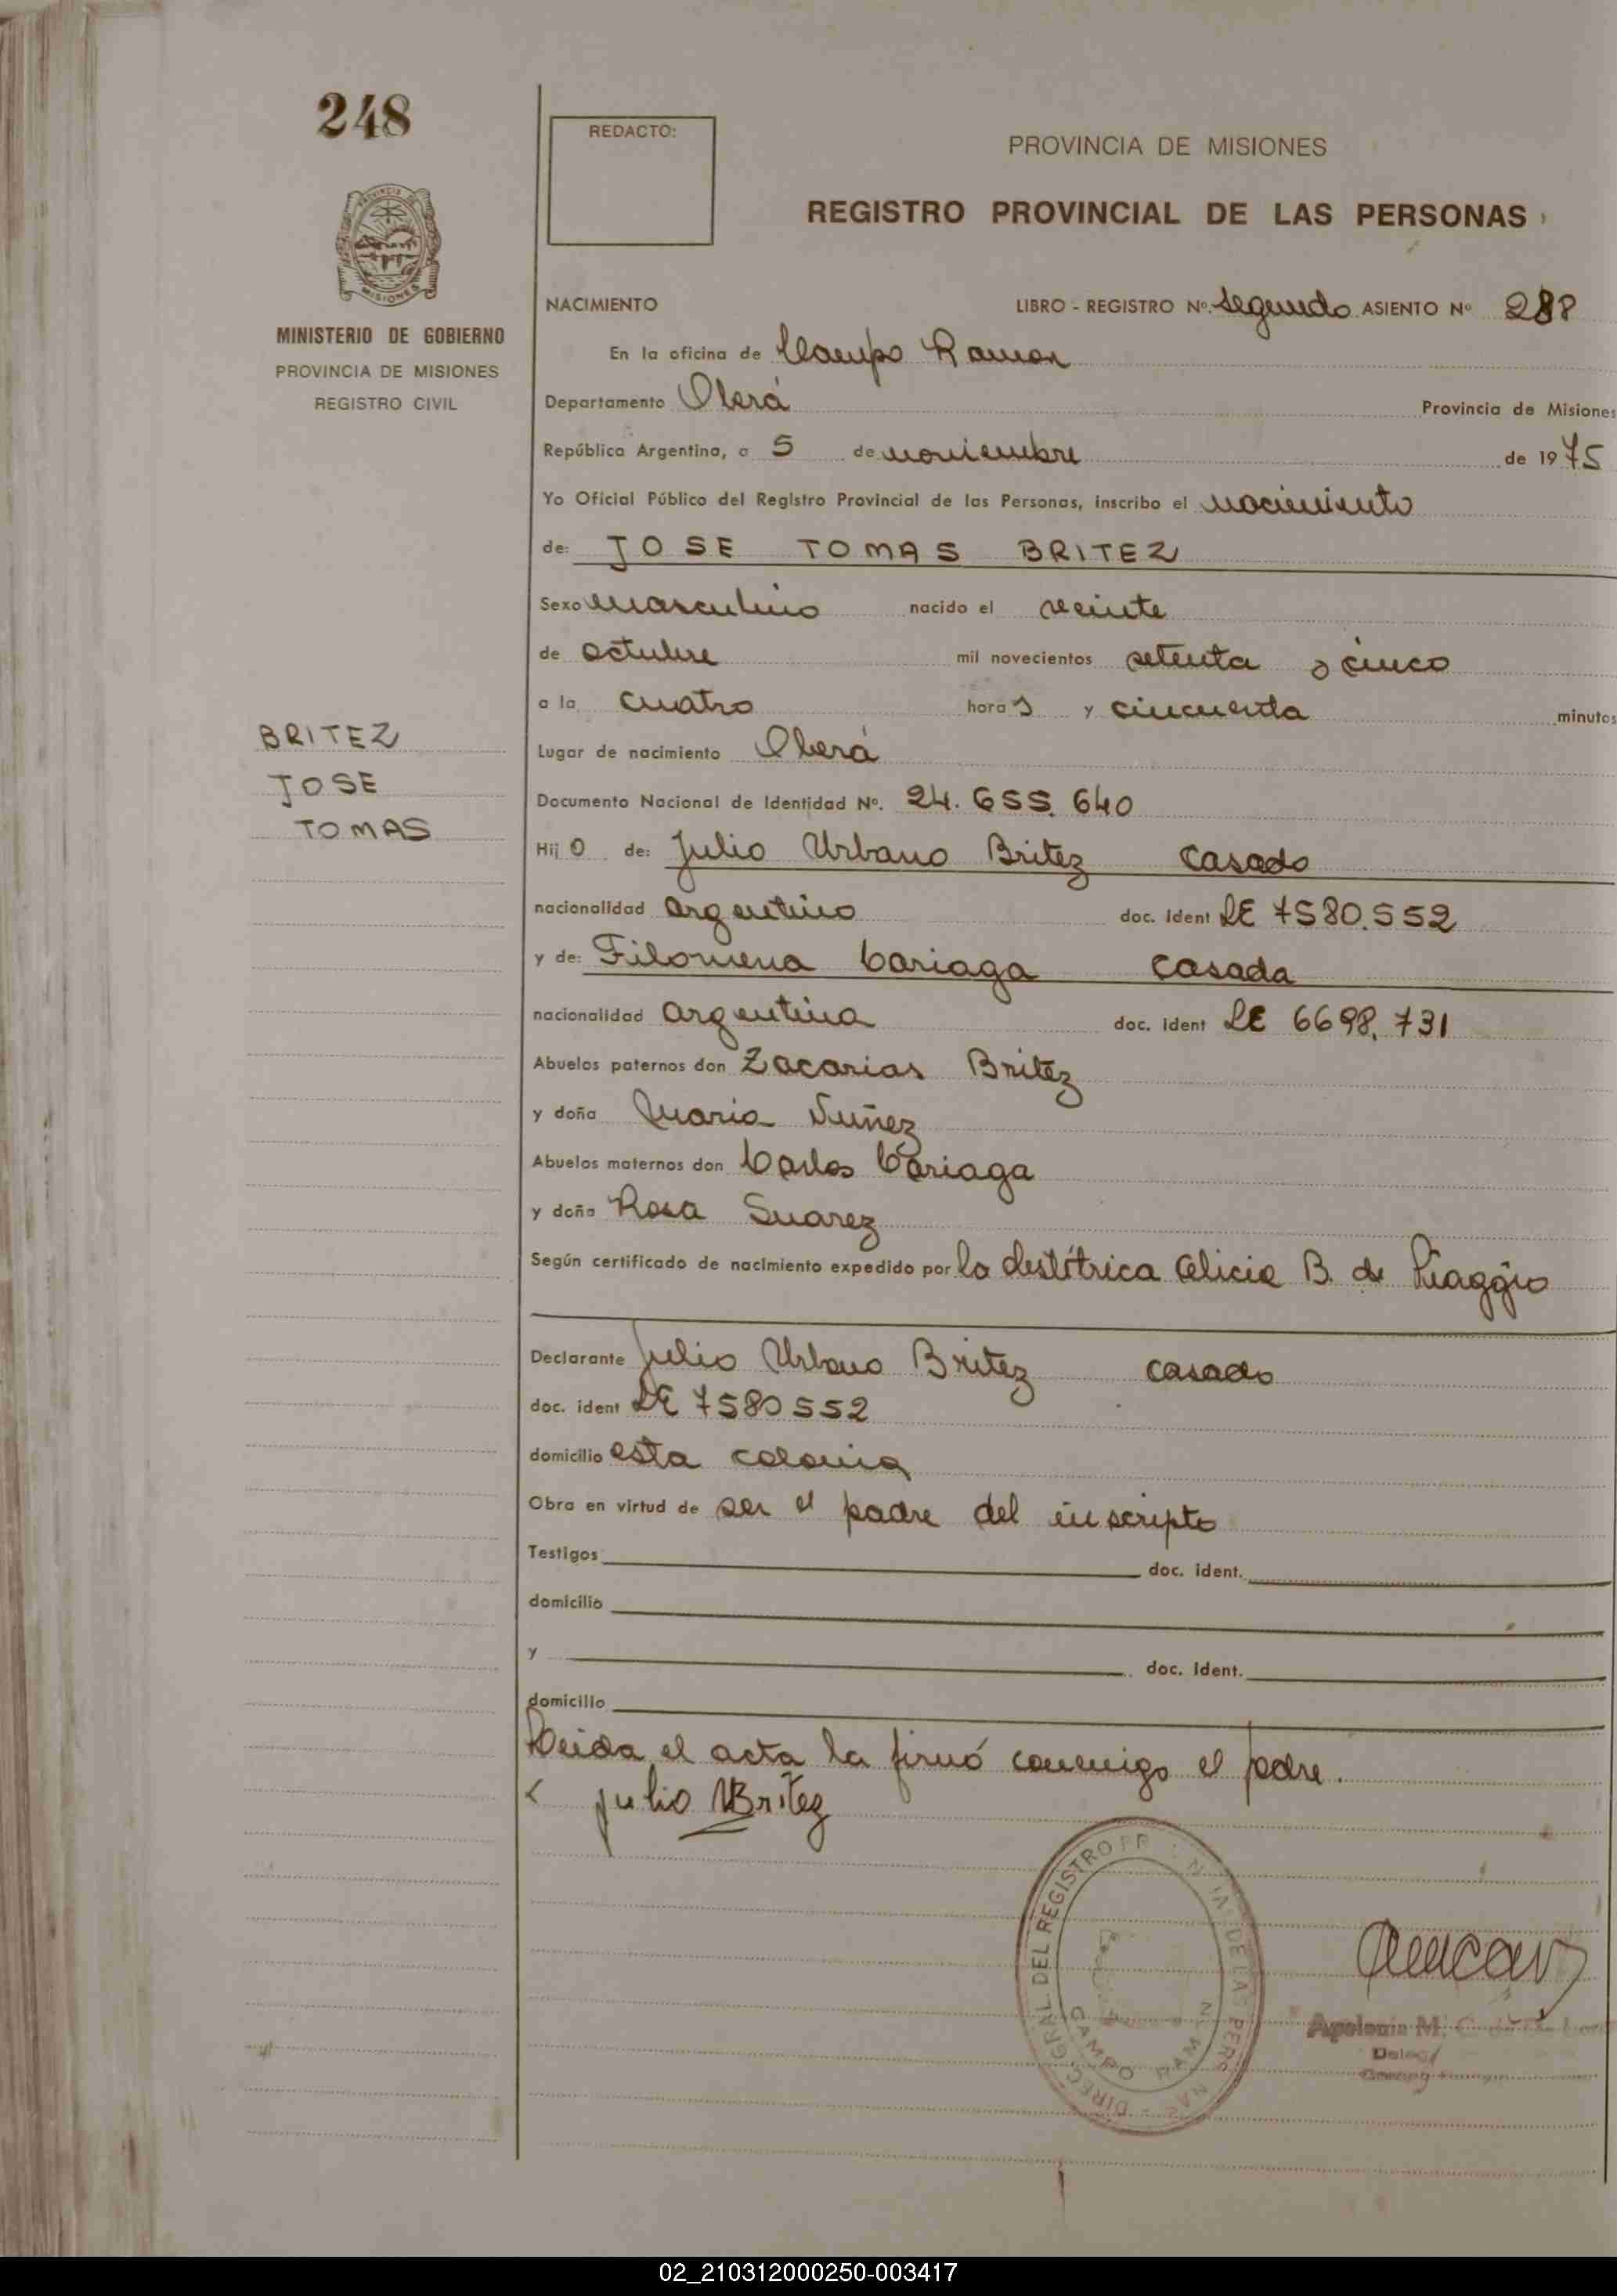 248
REDACTO:
PROVINCIA DE MISIONES
REGISTRO PROVINCIAL DE LAS PERSONAS
MISIONES
MINISTERIO DE GOBIERNO
PROVINCIA DE MISIONES
REGISTRO CIVIL
NACIMIENTO LIBRO - REGISTRO Nº. segundo ASIENTO Nº 288
En la oficina de Campo Ramon
Departamento Oberá Provincia de Misiones
República Argentina, a 5 de noviembre de 1975
Yo Oficial Público del Registro Provincial de las Personas, inscribo el nacimiento
de: JOSE TOMAS BRITEZ
Sexo masculino nacido el veinte
de octubre mil novecientos setenta y cinco
a la cuatro horas y cincuenta minutos
BRITEZ
JOSE
TOMAS
Lugar de nacimiento Oberá
Documento Nacional de Identidad Nº. 24.655.640
Hijo de: Julio Urbano Britez casado
nacionalidad argentino doc. ident LE 7580.552
y de: Filomena Cariaga casada
nacionalidad argentina doc. ident LE 6698.731
Abuelos paternos don Zacarias Britez
y doña Maria Nuñez
Abuelos maternos don Carlos Cariaga
y doña Rosa Suarez
Según certificado de nacimiento expedido por la obstítrica Alicia B. de Piaggio
Declarante Julio Urbano Britez casado
doc. ident LE 7580552
domicilio esta colonia
Obra en virtud de ser el padre del inscripto
Testigos doc. ident.
domicilio
y doc. ident.
domicilio
Leida el acta la firmó conmigo el padre.
Julio UBritez
DIREC. GRAL. DEL REGISTRO
CAMPO RAMON
Apolonia M. C. de
02_210312000250-003417